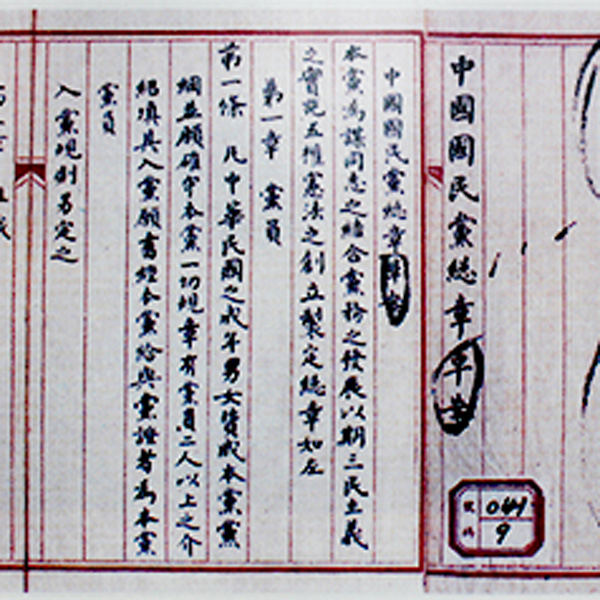 中國國民黨總章草案
號碼
9
中國國民黨總章草案
本黨為謀同志之結合黨務之發展以期三民主義
之實現五權憲法之創立製定總章如左
第一章 黨員
第一條 凡中華民國之成年男女贊成本黨黨
綱並願確守本黨一切規章有黨員二人以上之介
紹填具入黨願書經本黨給與黨證者為本黨
黨員
入黨規則另定之